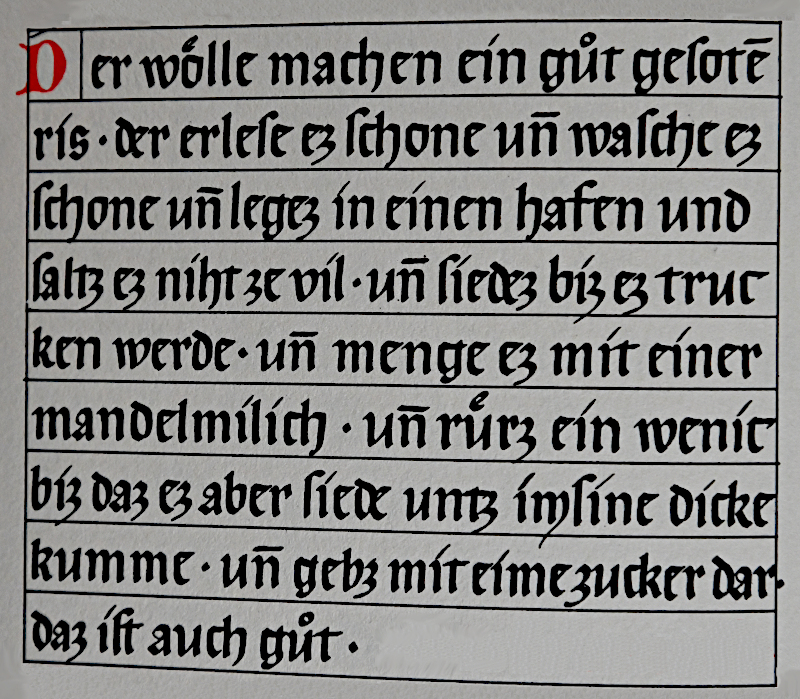 Der woͤlle machen ein guͦt geſotē
ris · der erleſe ez ſchone un̄ waſche ez
ſchone un̄ legez in einen hafen und
ſaltz ez niht ze vil · un̄ ſiedez biz ez truc
ken werde · un̄ menge ez mit einer
mandelmilich · un̄ ruͤrz ein wenic
biz daz ez aber ſiede untz im ſine dicke
kumme · un̄ gebz mit eime zucker dar·
daz iſt auch guͦt ·